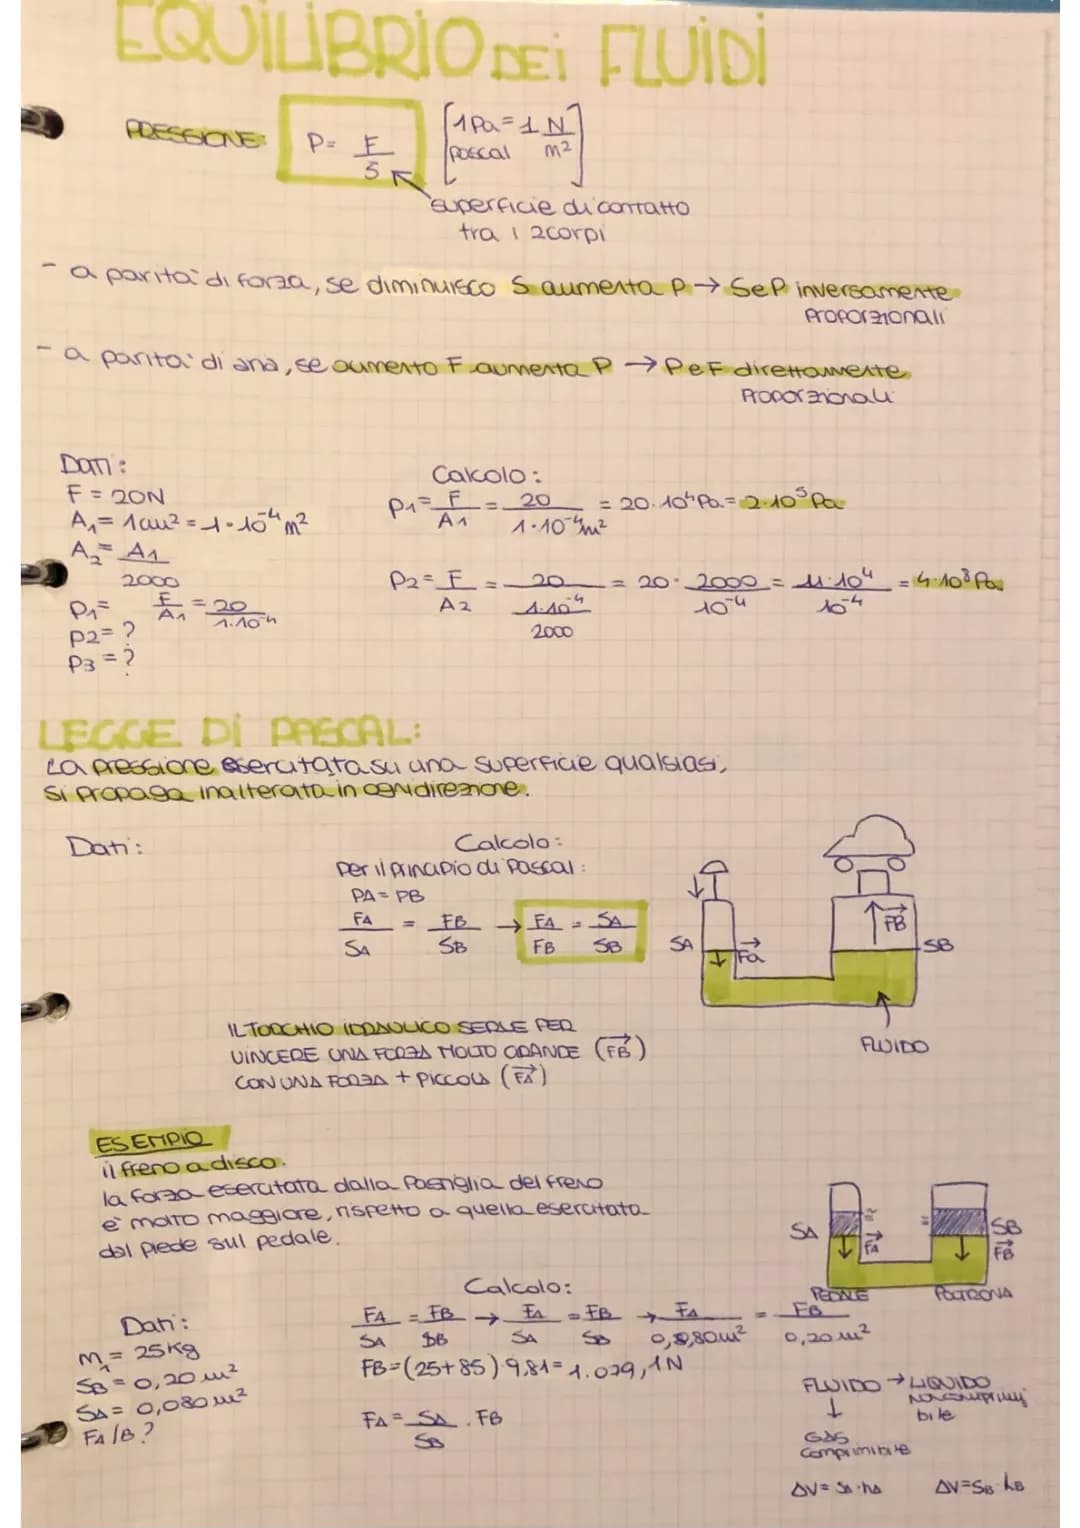 EQUILIBRIO DEI FLUIDI
PRESSIONE: P = F/S [1Pa = 1 N/m² pascal]
superficie di contatto
tra i 2 corpi
- a parità di forza, se diminuisco S aumenta P → S e P inversamente
proporzionali
- a parità di area, se aumento F aumenta P → P e F direttamente
proporzionali
Dati:
F = 20N
A₁ = 1cm² = 1·10⁻⁴ m²
A₂ = A₁/2000
P₁ = F/A₁ = 20/1·10⁻⁴
P2 = ?
P3 = ?
Calcolo:
P₁ = F/A₁ = 20/1·10⁻⁴m² = 20·10⁴ Pa = 2·10⁵ Pa
P2 = F/A2 = 20/(1·10⁻⁴/2000) = 20 · 2000/10⁻⁴ = 4·10⁴/10⁻⁴ = 4·10⁸ Pa
LEGGE DI PASCAL:
La pressione esercitata su una superficie qualsiasi,
si propaga inalterata in ogni direzione.
Dati:
Calcolo:
per il principio di Pascal:
PA = PB
FA/SA = FB/SB → FA/FB = SA/SB
SA
Fa
FB
SB
FLUIDO
IL TORCHIO IDRAULICO SERVE PER
VINCERE UNA FORZA MOLTO GRANDE (FB)
CON UNA FORZA + PICCOLA (FA)
ESEMPIO
il freno a disco.
la forza esercitata dalla pastiglia del freno
è molto maggiore, rispetto a quella esercitata
dal piede sul pedale.
SA
FA
SB
FB
PEDALE
POLTRONA
Dati:
m₁ = 25Kg
SB = 0,20 m²
SA = 0,080 m²
FA/B?
Calcolo:
FA/SA = FB/SB → FA/SA = FB/SB → FA/0,080m² = FB/0,20 m²
FB = (25+85) 9,81 = 1.079,1 N
FA = SA/SB · FB
FLUIDO → LIQUIDO
non comprimi
bile
↓
GAS
comprimibile
ΔV = SA·hA
ΔV = SB·hB